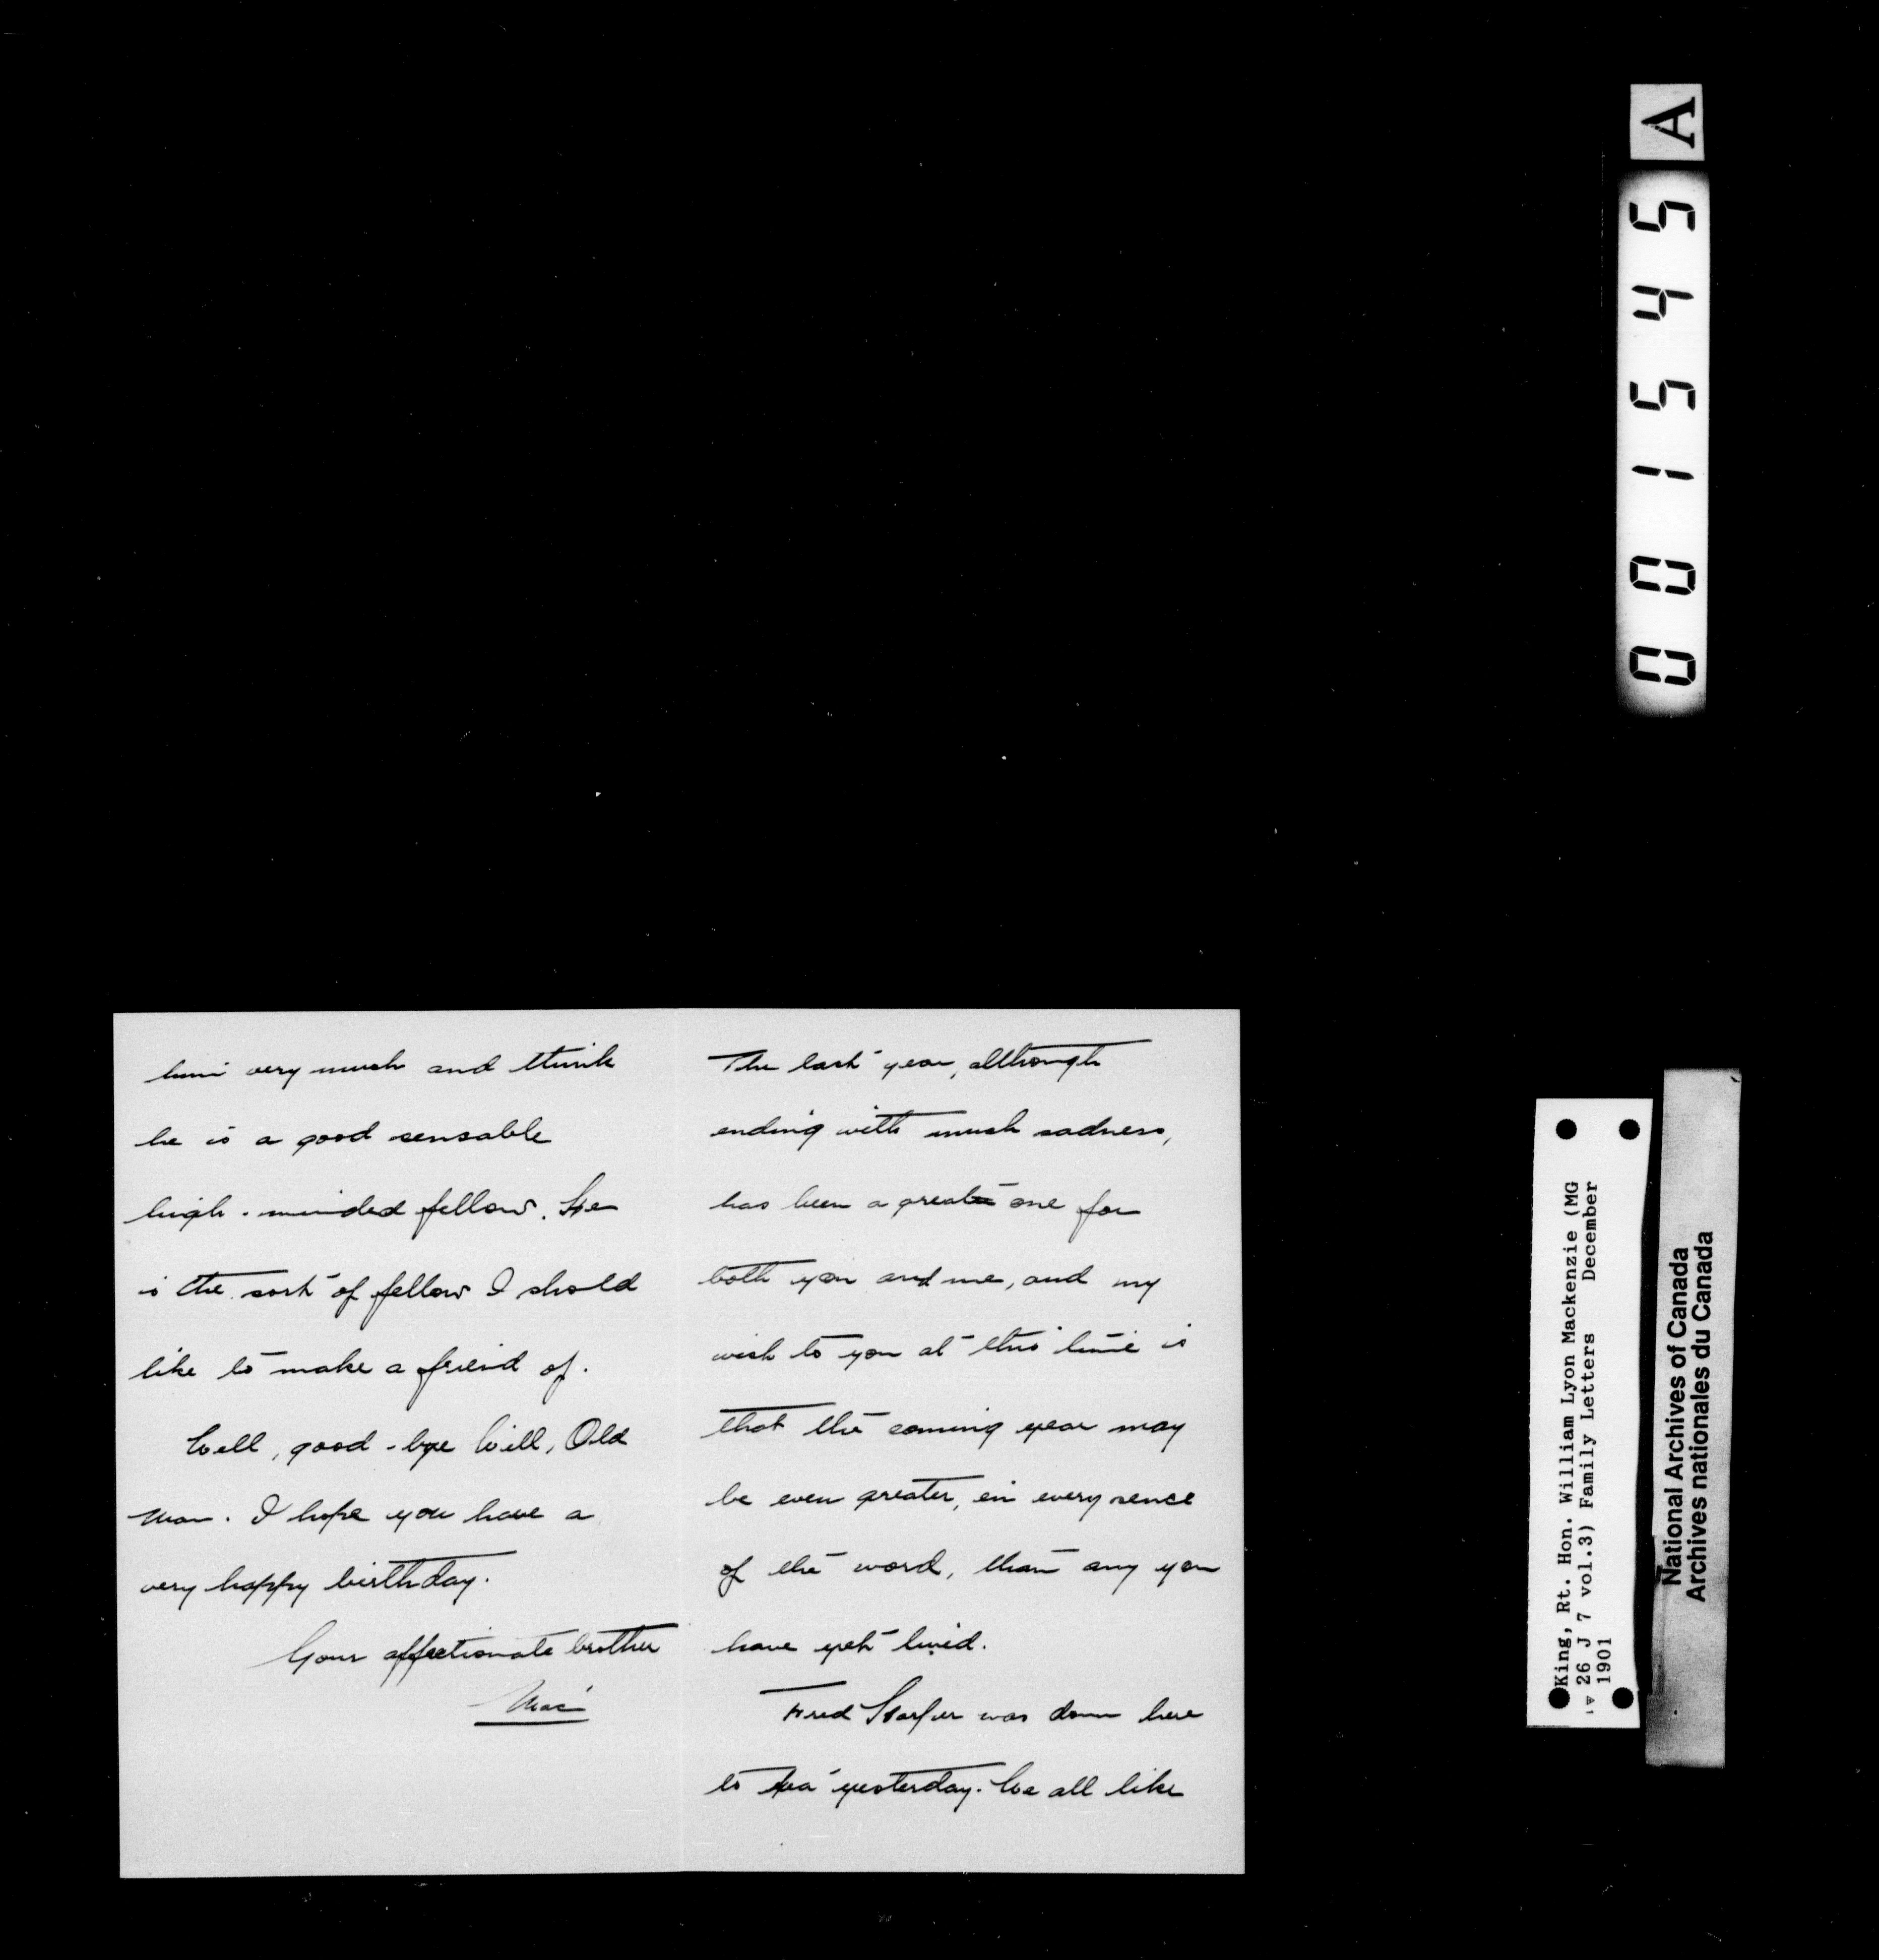 The last year, although
ending with much sadness,
has been a great one for
both you and me, and my
wish to you at this time is
that the coming year may
be even greater, in every sence
of the word, than any you
have yet lived.
Fred Harper was down here
to tea yesterday. We all like
him very much and think
he is a good sensable
high-minded fellow. He
is the sort of fellow I shold
like to make a friend of.
Well, good-bye Will, Old
man. I hope you have a
very happy birthday.
Your affectionate brother
Max
A
001545
King, Rt. Hon. William Lyon Mackenzie (MG
26 J 7 vol.3) Family Letters December
1901
National Archives of Canada
Archives nationales du Canada